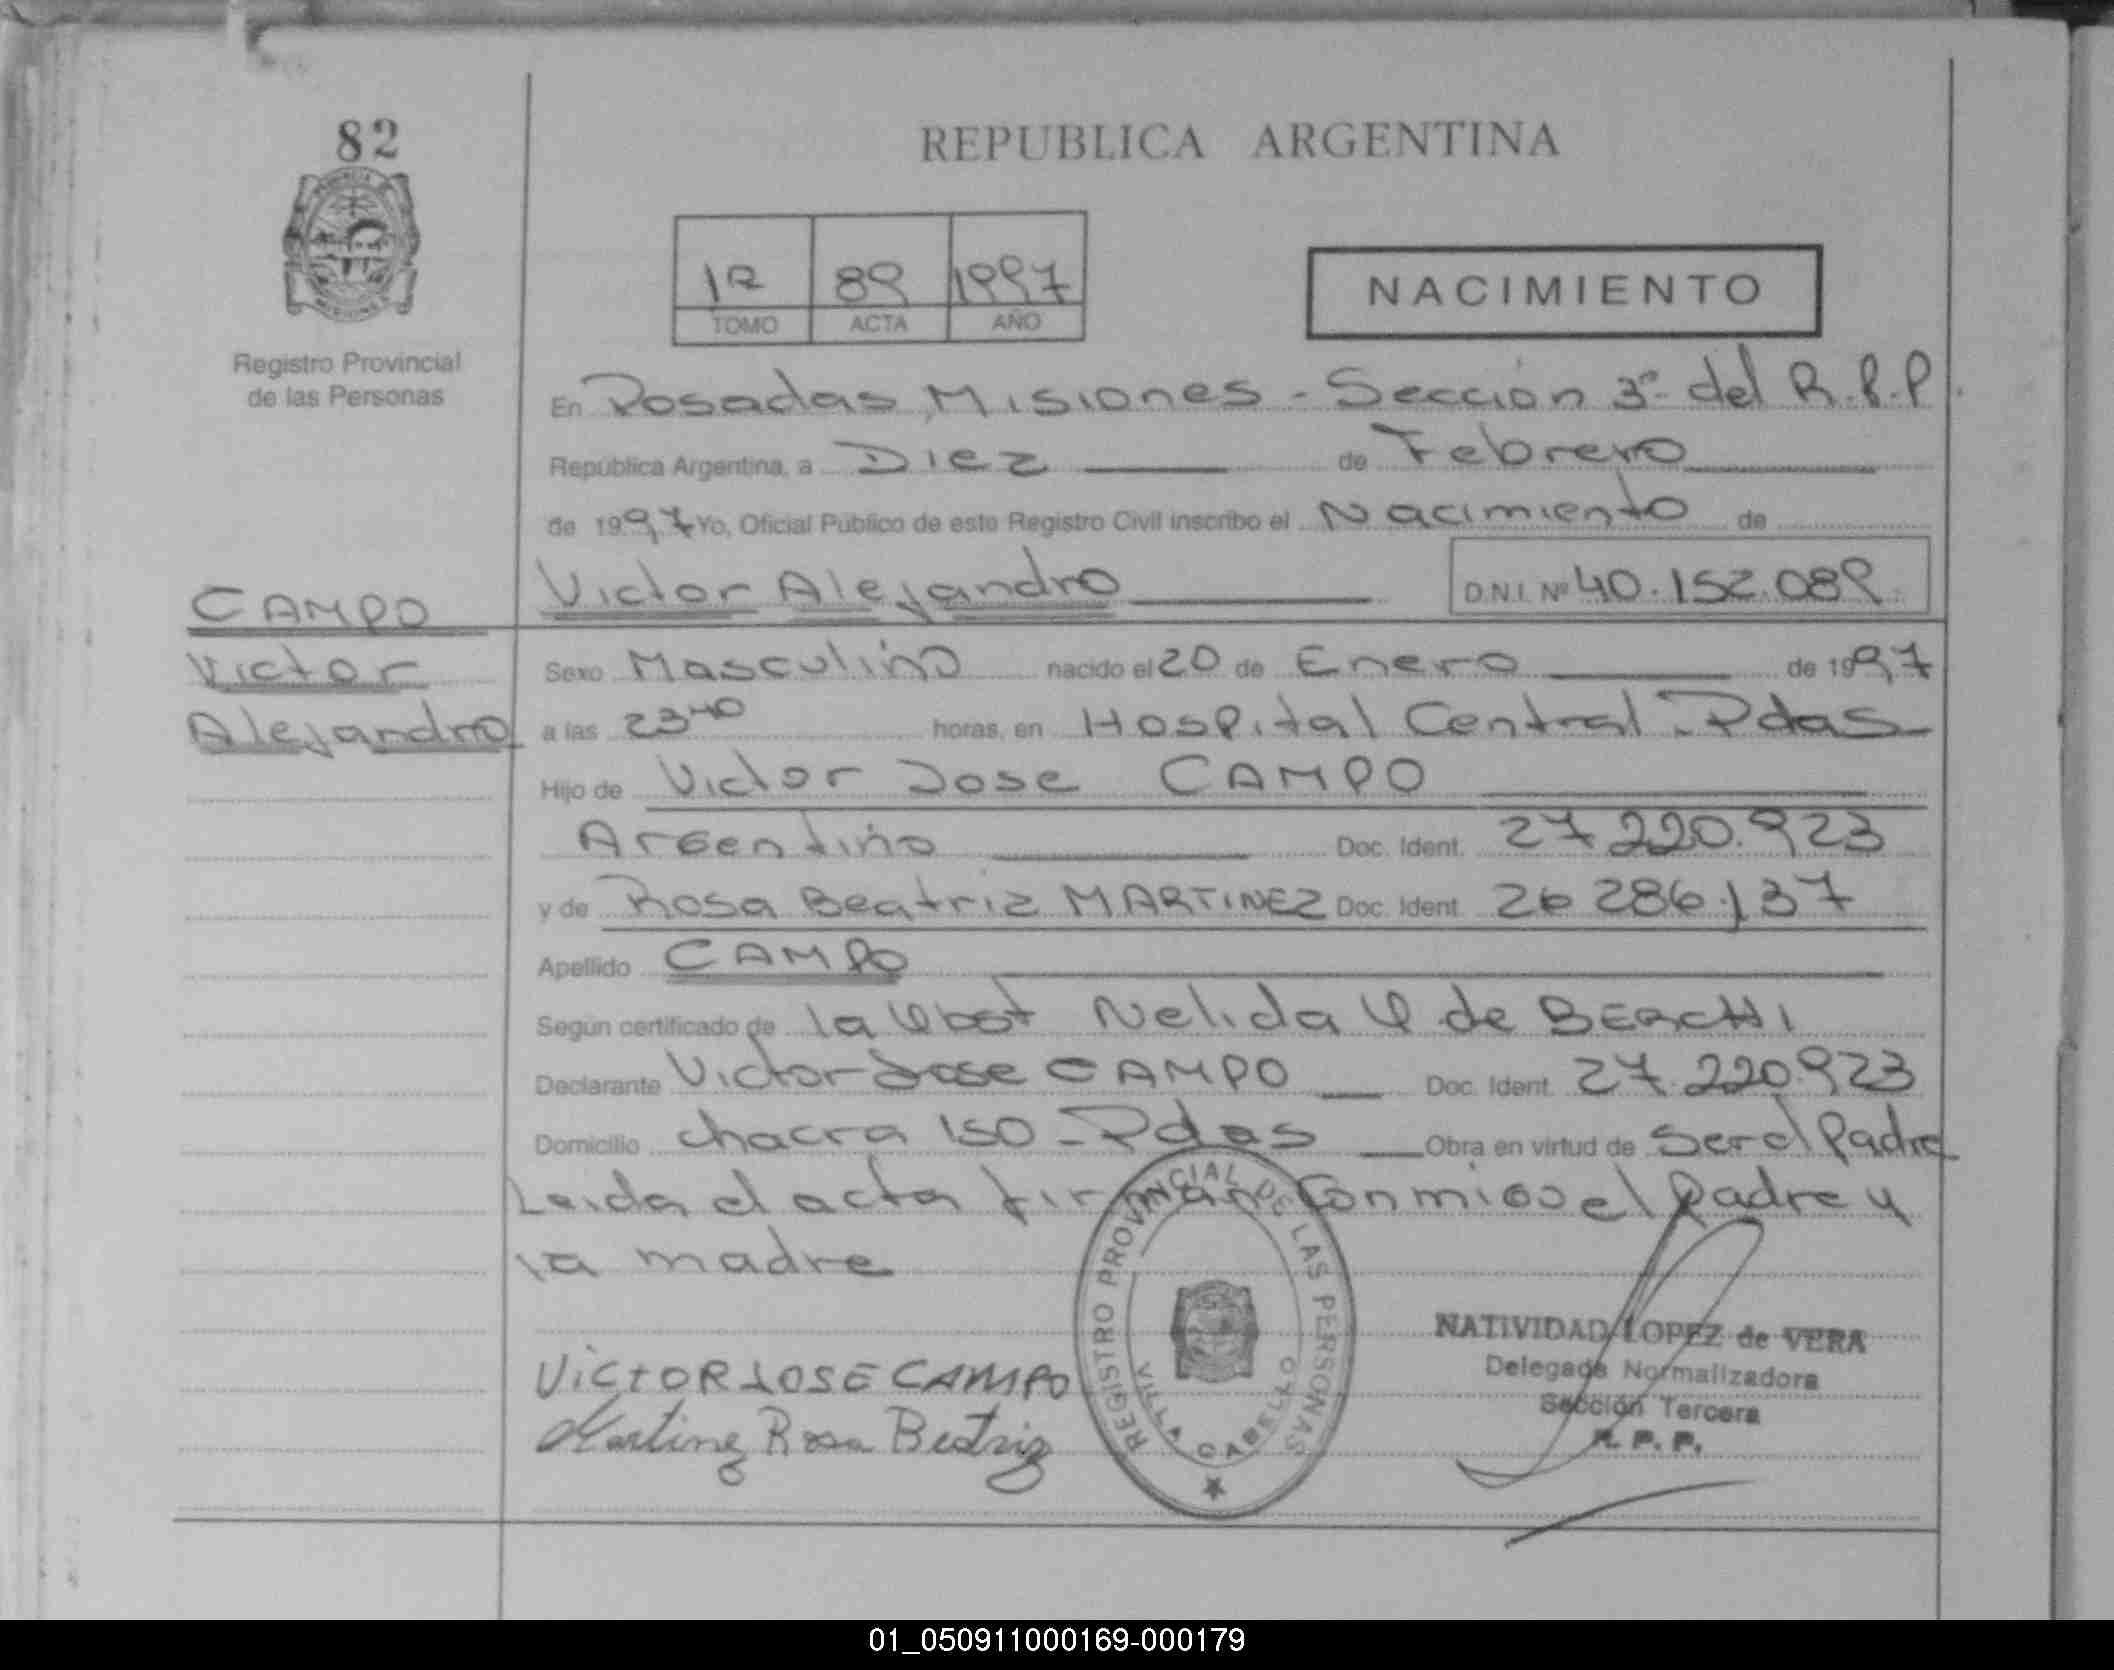 82
REPUBLICA ARGENTINA
1997
TOMO ACTA AÑO
NACIMIENTO
Registro Provincial
de las Personas
En Posadas, Misiones - Sección 3ª del R.P.P.
República Argentina, a Diez de Febrero
de 1997 Yo, Oficial Público de este Registro Civil inscribo el Nacimiento de
CAMPO
Victor
Alejandro
Victor Alejandro D.N.I. Nº 40.152.089
Sexo Masculino nacido el 20 de Enero de 1997
a las 23 40 horas, en Hospital Central - Pdas
Hijo de Victor Jose CAMPO
Argentino Doc. Ident. 27.220.923
y de Rosa Beatriz MARTINEZ Doc. Ident. 26 286.137
Apellido CAMPO
Según certificado de la Obst Nelida de
Declarante Victor Jose CAMPO Doc. Ident. 27.220.923
Domicilio chacra 150 - Pdas Obra en virtud de Ser el Padre
Leida el acta firman conmigo el Padre y
la madre
REGISTRO PROVINCIAL DE LAS PERSONAS
VILLA CABELLO
VICTOR JOSE CAMPO
Martinez Rosa Beatriz
NATIVIDAD LOPEZ de VERA
Delegada Normalizadora
Sección Tercera
R. P. P.
01_050911000169-000179